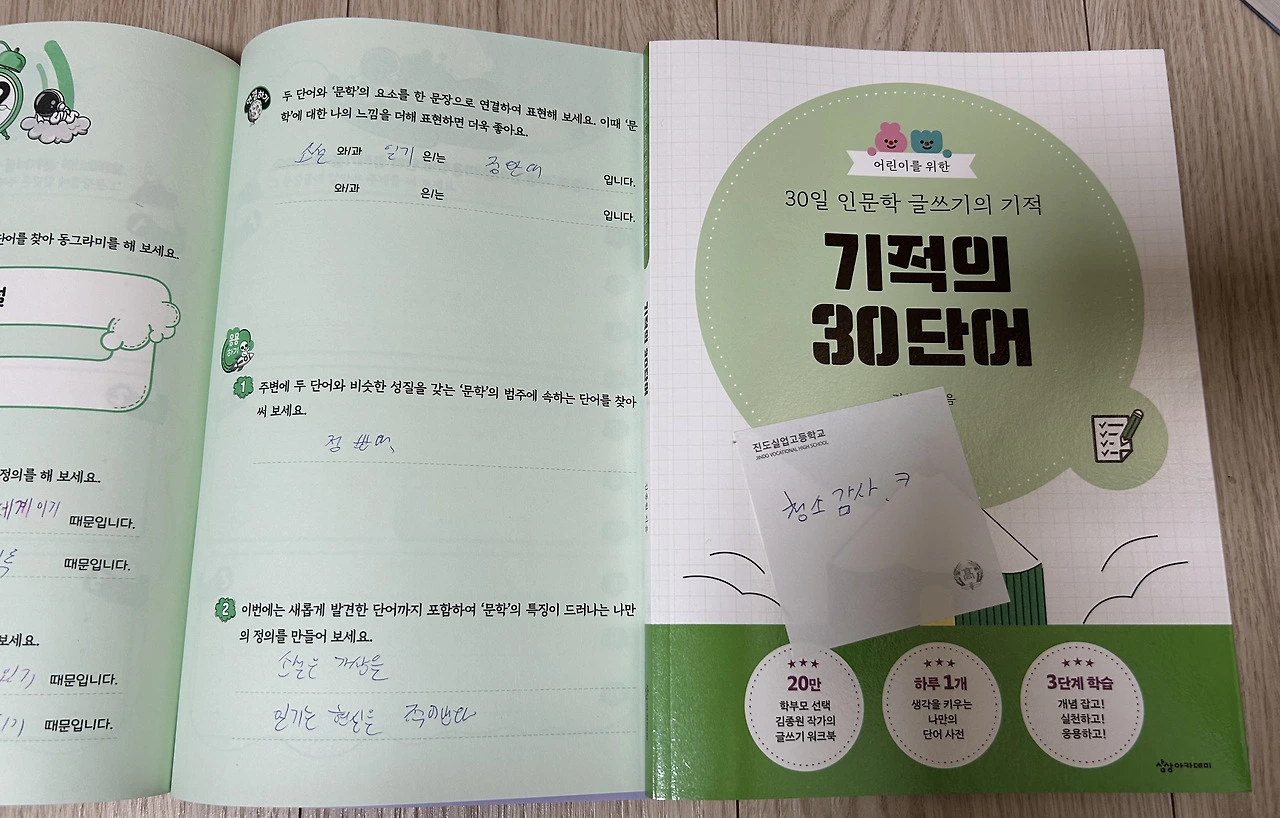 단어를 찾아 동그라미를 해 보세요.
정의를 해 보세요.
세계이기 때문입니다.
때문입니다.
보세요.
때문입니다.
때문입니다.
두 단어와 '문학'의 요소를 한 문장으로 연결하여 표현해 보세요. 이때 '문
학'에 대한 나의 느낌을 더해 표현하면 더욱 좋아요.
소설 와/과 일기 은/는 입니다.
와/과 은/는 입니다.
응용
하기
1 주변에 두 단어와 비슷한 성질을 갖는 '문학'의 범주에 속하는 단어를 찾아
써 보세요.
2 이번에는 새롭게 발견한 단어까지 포함하여 '문학'의 특징이 드러나는 나만
의 정의를 만들어 보세요.
소설은
현실을
어린이를 위한
30일 인문학 글쓰기의 기적
기적의
30단어
진도실업고등학교
JINDO VOCATIONAL HIGH SCHOOL
청소 감사.ㅋ
高
20만
학부모 선택
김종원 작가의
글쓰기 워크북
하루 1개
생각을 키우는
나만의
단어 사전
3단계 학습
개념 잡고!
실천하고!
응용하고!
상상아카데미